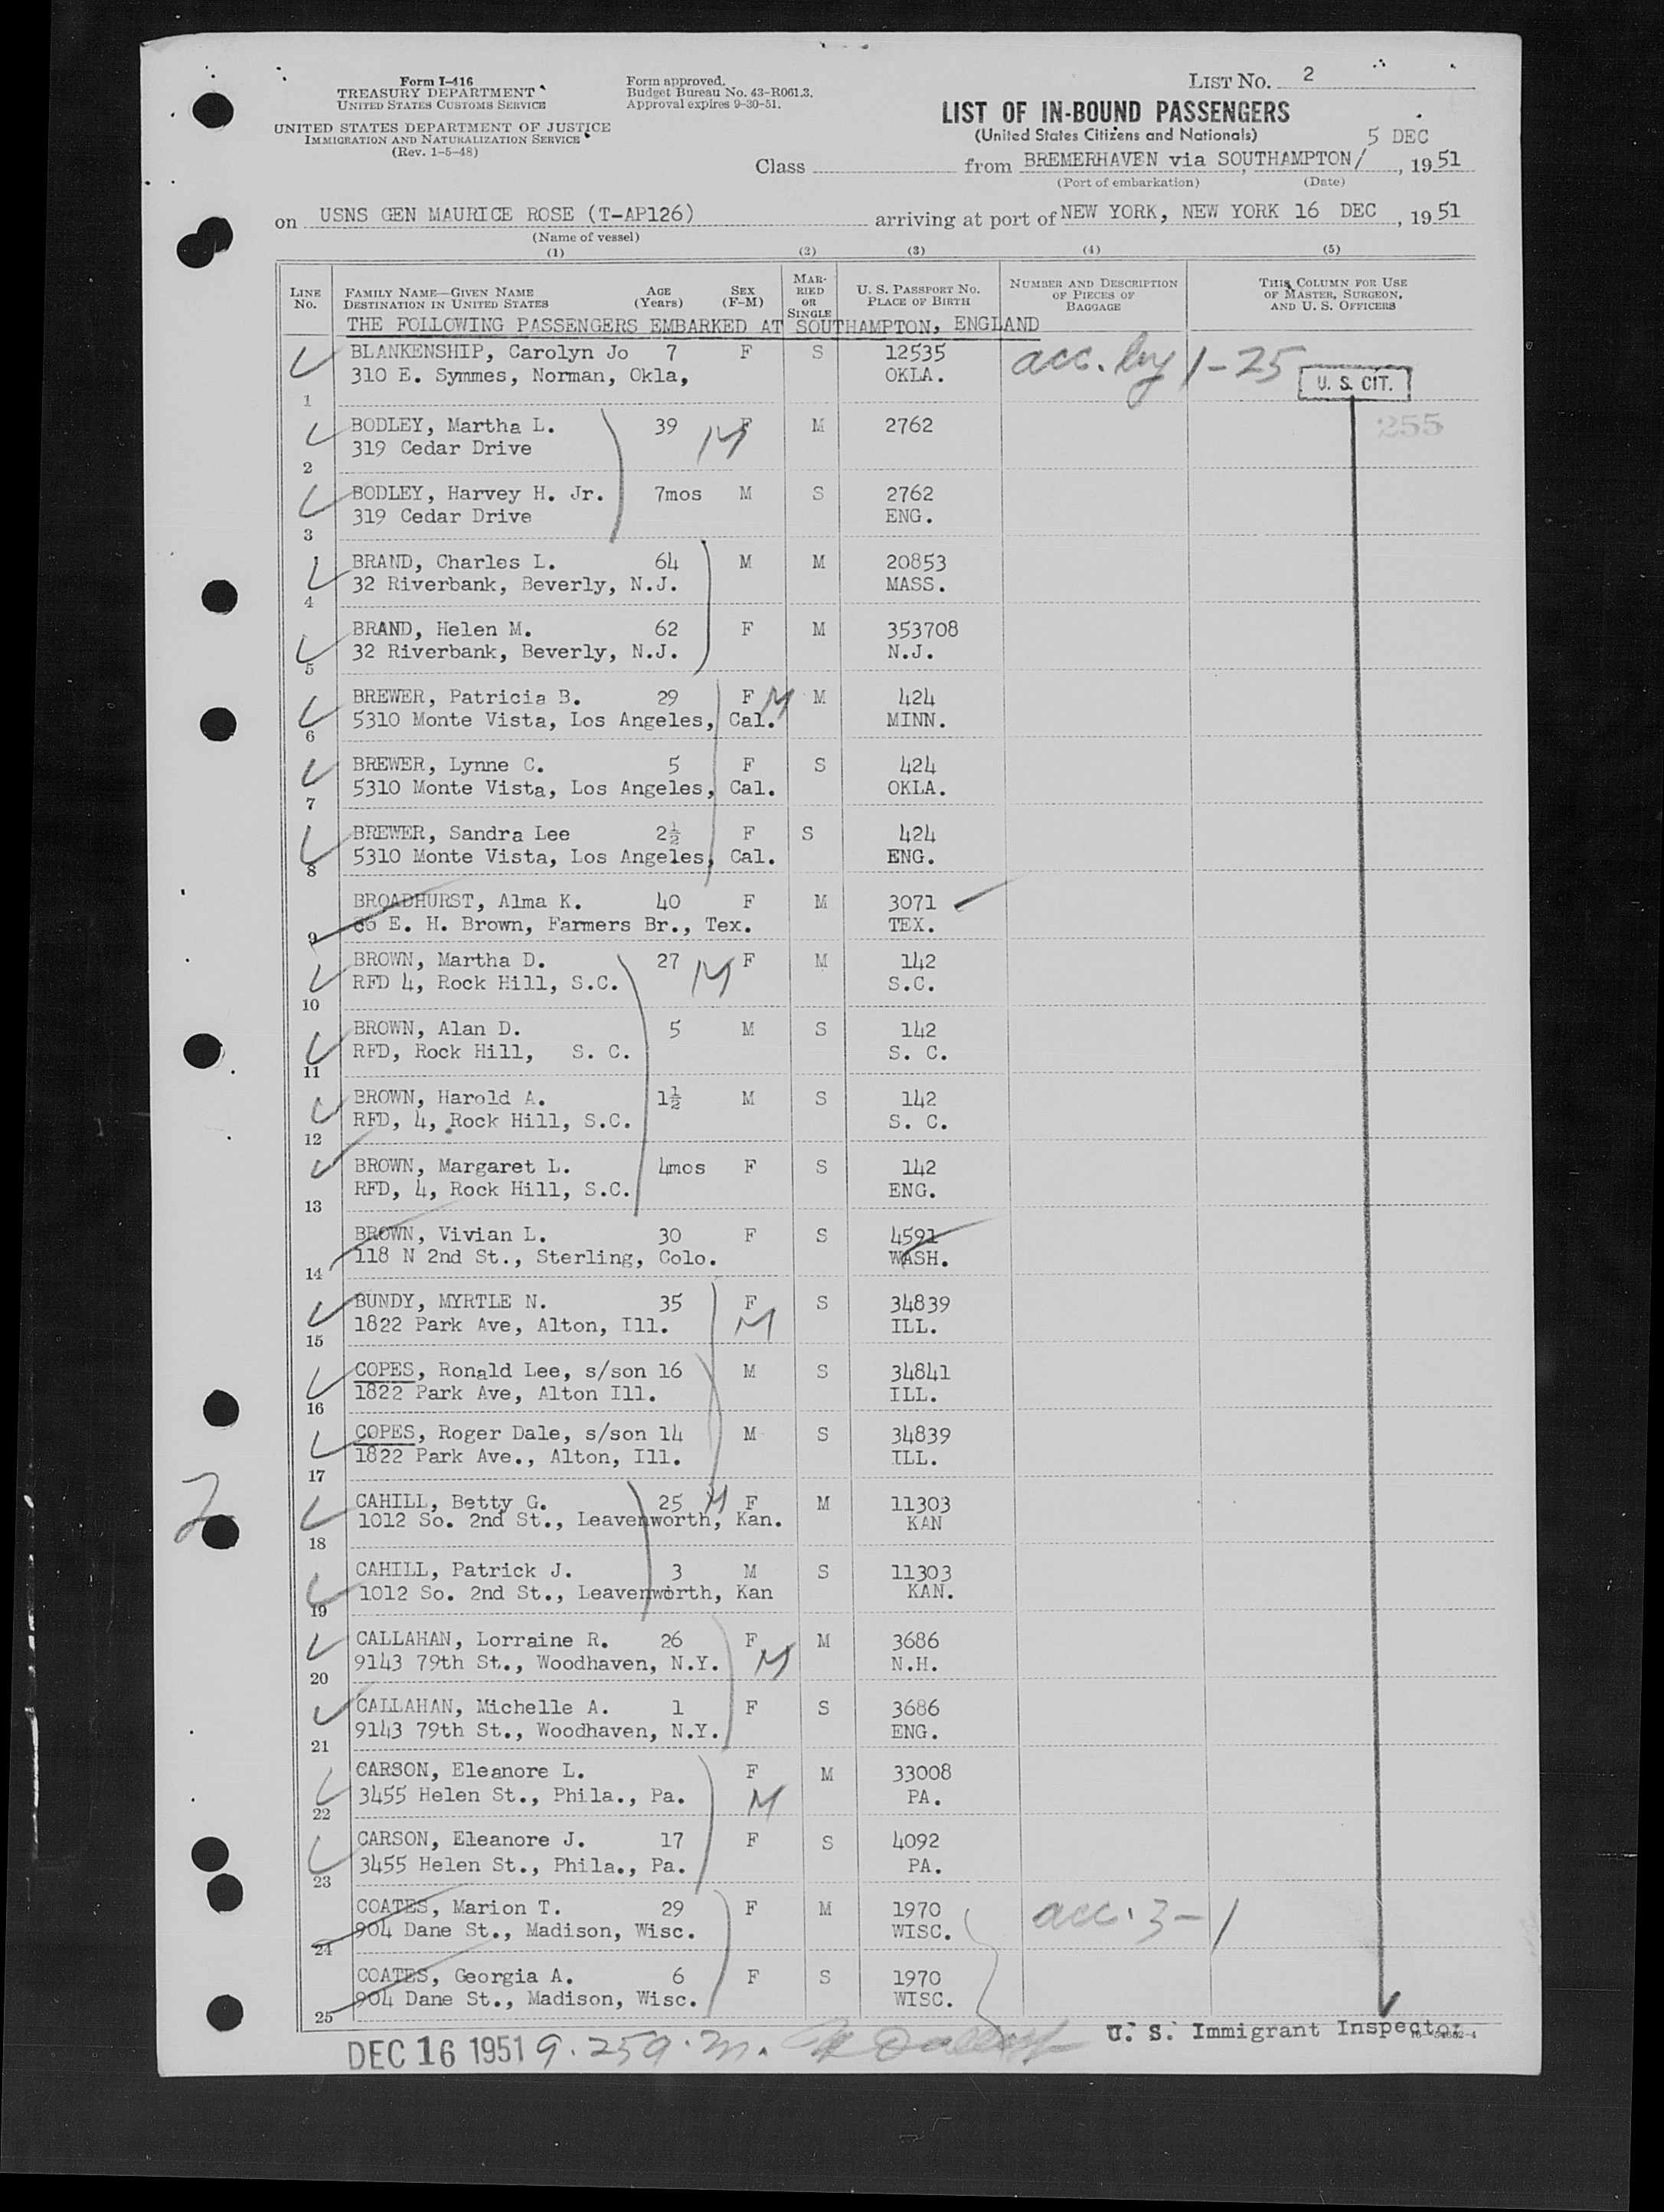 Form I-416
TREASURY DEPARTMENT
UNITED STATES CUSTOMS SERVICE
UNITED STATES DEPARTMENT OF JUSTICE
IMMIGRATION AND NATURALIZATION SERVICE
(Rev. 1-5-48)
Form approved.
Budget Bureau No. 43-R061.3.
Approval expires 9-30-51.
LIST NO. 2
LIST OF IN-BOUND PASSENGERS
(United States Citizens and Nationals)
5 DEC
Class from BREMERHAVEN via SOUTHAMPTON/, 1951
(Port of embarkation) (Date)
on USNS GEN MAURICE ROSE (T-AP126) arriving at port of NEW YORK, NEW YORK 16 DEC, 1951
(Name of vessel)
(1) (2) (3) (4) (5)
LINE NO. FAMILY NAME—GIVEN NAME DESTINATION IN UNITED STATES AGE (Years) SEX (F-M) MARRIED OR SINGLE U. S. PASSPORT NO. PLACE OF BIRTH NUMBER AND DESCRIPTION OF PIECES OF BAGGAGE THIS COLUMN FOR USE OF MASTER, SURGEON, AND U. S. OFFICERS
THE FOLLOWING PASSENGERS EMBARKED AT SOUTHAMPTON, ENGLAND
BLANKENSHIP, Carolyn Jo 7 F S 12535 acc. by 1-25
310 E. Symmes, Norman, Okla, OKLA. U. S. CIT.
1
BODLEY, Martha L. 39 F M M 2762 255
319 Cedar Drive
2
BODLEY, Harvey H. Jr. 7mos M S 2762
319 Cedar Drive ENG.
3
BRAND, Charles L. 64 M M 20853
32 Riverbank, Beverly, N.J. MASS.
4
BRAND, Helen M. 62 F M 353708
32 Riverbank, Beverly, N.J. N.J.
5
BREWER, Patricia B. 29 F M M 424
5310 Monte Vista, Los Angeles, Cal. MINN.
6
BREWER, Lynne C. 5 F S 424
5310 Monte Vista, Los Angeles, Cal. OKLA.
7
BREWER, Sandra Lee 2½ F S 424
5310 Monte Vista, Los Angeles, Cal. ENG.
8
BROADHURST, Alma K. 40 F M 3071
E. H. Brown, Farmers Br., Tex. TEX.
9
BROWN, Martha D. 27 M F M 142
RFD 4, Rock Hill, S.C. S.C.
10
BROWN, Alan D. 5 M S 142
RFD, Rock Hill, S. C. S. C.
11
BROWN, Harold A. 1½ M S 142
RFD, 4, Rock Hill, S.C. S. C.
12
BROWN, Margaret L. 4mos F S 142
RFD, 4, Rock Hill, S.C. ENG.
13
BROWN, Vivian L. 30 F S 4591
118 N 2nd St., Sterling, Colo. WASH.
14
BUNDY, MYRTLE N. 35 F S 34839
1822 Park Ave, Alton, Ill. M ILL.
15
COPES, Ronald Lee, s/son 16 M S 34841
1822 Park Ave, Alton Ill. ILL.
16
COPES, Roger Dale, s/son 14 M S 34839
1822 Park Ave., Alton, Ill. ILL.
17
2
CAHILL, Betty G. 25 M F M 11303
1012 So. 2nd St., Leavenworth, Kan. KAN
18
CAHILL, Patrick J. 3 M S 11303
1012 So. 2nd St., Leavenworth, Kan KAN.
19
CALLAHAN, Lorraine R. 26 F M 3686
9143 79th St., Woodhaven, N.Y. M N.H.
20
CALLAHAN, Michelle A. 1 F S 3686
9143 79th St., Woodhaven, N.Y. ENG.
21
CARSON, Eleanore L. F M 33008
3455 Helen St., Phila., Pa. M PA.
22
CARSON, Eleanore J. 17 F S 4092
3455 Helen St., Phila., Pa. PA.
23
COATES, Marion T. 29 F M 1970 acc. 3-1
904 Dane St., Madison, Wisc. WISC.
24
COATES, Georgia A. 6 F S 1970
904 Dane St., Madison, Wisc. WISC.
25
DEC 16 1951 9.25 a.m. U. S. Immigrant Inspector